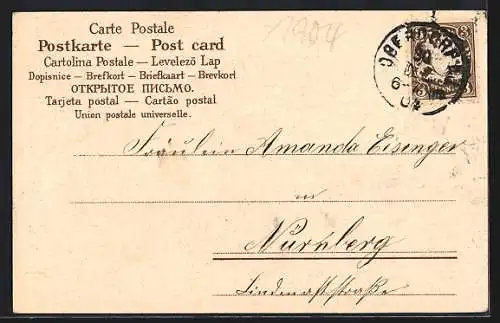 1904
Carte Postale
Postkarte — Post card
Cartolina Postale — Levelező Lap
Dopisnice — Brefkort — Briefkaart — Brevkort
ОТКРЫТОЕ ПИСЬМО.
Tarjeta postal — Cartão postal
Union postale universelle.
30
6-
04
3
Fräulein Amanda Eisinger
in
Nürnberg